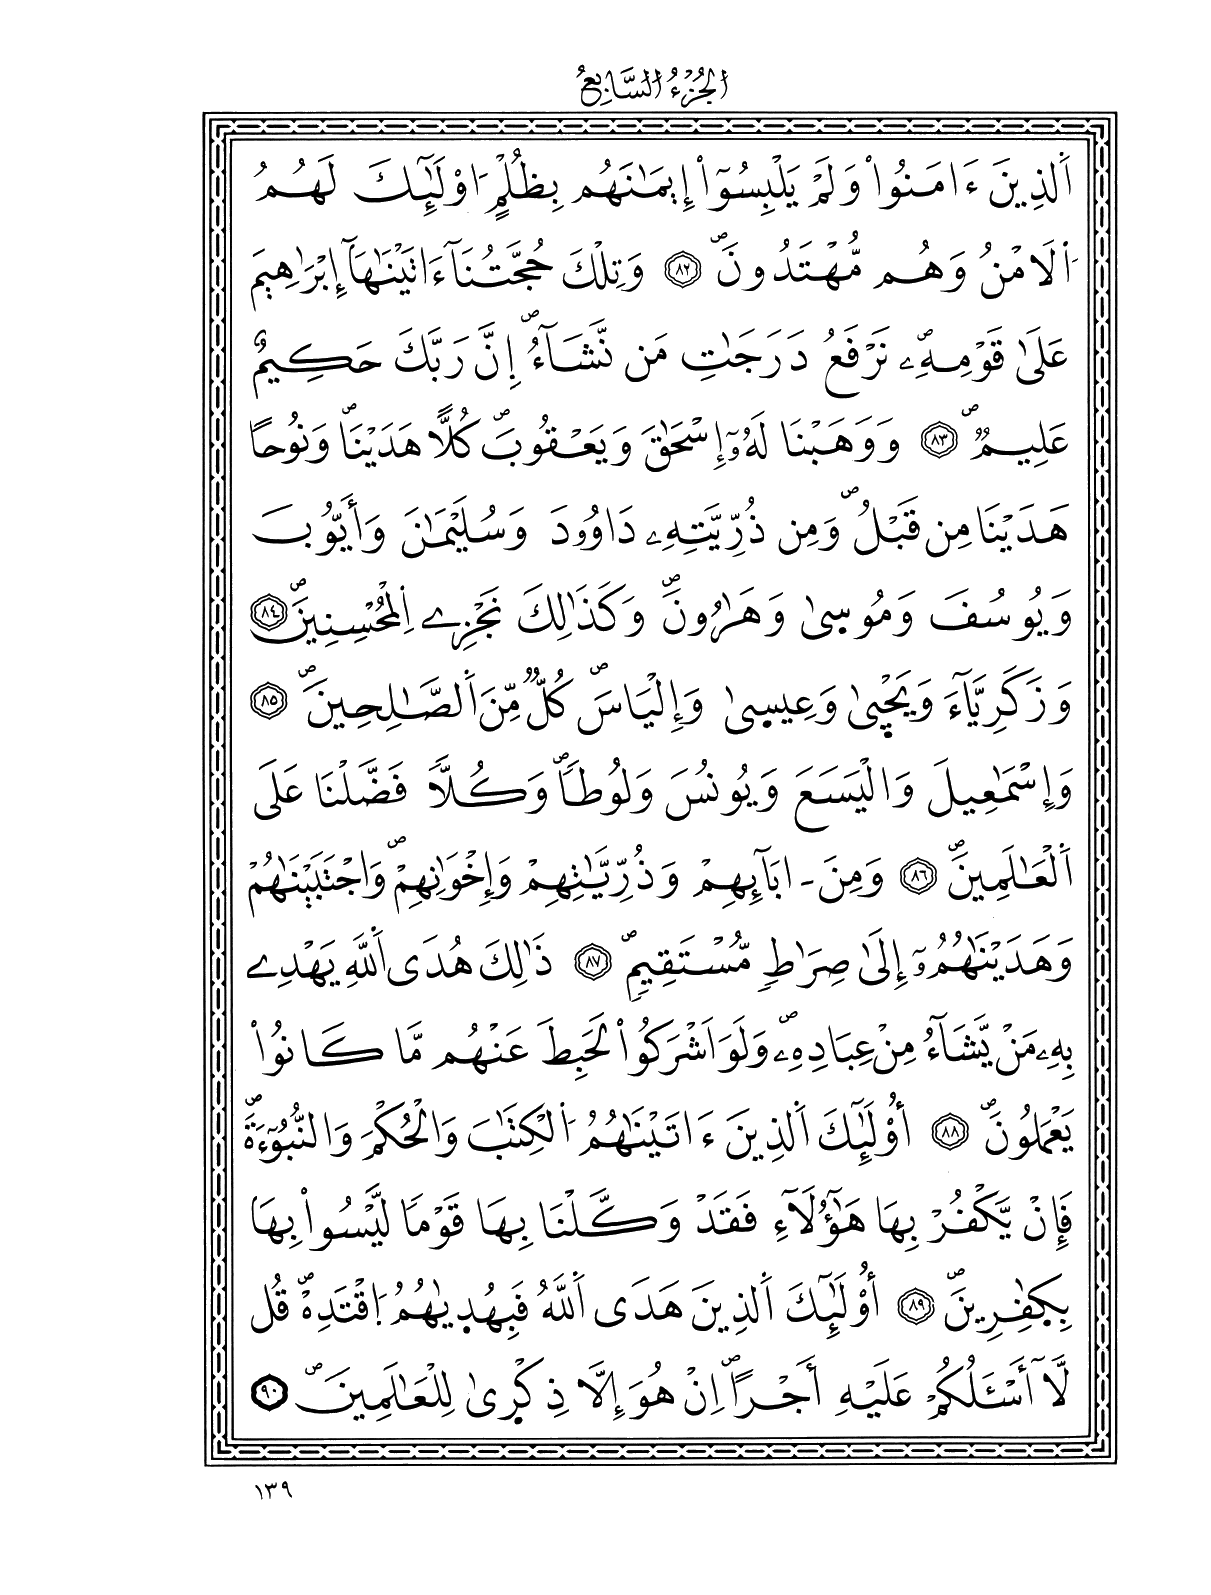 الجزء السابع
اَ۬لذِينَ ءَامَنُواْ وَلَمْ يَلْبِسُوٓاْ إِيمَٰنَهُم بِظُلْمٍ ا۟وْلَٰٓئِكَ لَهُمُ
اُ۬لَامْنُ وَهُم مُّهْتَدُونَۖ ٨٢ وَتِلْكَ حُجَّتُنَآ ءَاتَيْنَٰهَآ إِبْرَٰهِيمَ
عَلَىٰ قَوْمِهِۦۖ نَرْفَعُ دَرَجَٰتِ مَن نَّشَآءُۖ اِنَّ رَبَّكَ حَكِيمٌ
عَلِيمٌۖ ٨٣ وَوَهَبْنَا لَهُۥٓ إِسْحَٰقَ وَيَعْقُوبَۖ كُلّاً هَدَيْنَاۖ وَنُوحاً
هَدَيْنَا مِن قَبْلُۖ وَمِن ذُرِّيَّتِهِۦ دَاوُۥدَ وَسُلَيْمَٰنَ وَأَيُّوبَ
وَيُوسُفَ وَمُوسىٰ وَهَٰرُونَۖ وَكَذَٰلِكَ نَجْزِے اِ۬لْمُحْسِنِينَۖ ٨٤
وَزَكَرِيَّآءَ وَيَحْيىٰ وَعِيسىٰ وَإِلْيَاسَۖ كُلّٞ مِّنَ اَ۬لصَّٰلِحِينَۖ ٨٥
وَإِسْمَٰعِيلَ وَالْيَسَعَ وَيُونُسَ وَلُوطاًۖ وَكُلّاً فَضَّلْنَا عَلَى
اَ۬لْعَٰلَمِينَۖ ٨٦ وَمِنَ اٰبَآئِهِمْ وَذُرِّيَّٰتِهِمْ وَإِخْوَٰنِهِمْۖ وَاجْتَبَيْنَٰهُمْ
وَهَدَيْنَٰهُمُۥٓ إِلَىٰ صِرَٰطٖ مُّسْتَقِيمٖۖ ٨٧ ذَٰلِكَ هُدَى اَ۬للَّهِ يَهْدِے
بِهِۦ مَنْ يَّشَآءُ مِنْ عِبَادِهِۦۖ وَلَوَ اَشْرَكُواْ لَحَبِطَ عَنْهُم مَّا كَانُواْ
يَعْمَلُونَۖ ٨٨ أُوْلَٰٓئِكَ اَ۬لذِينَ ءَاتَيْنَٰهُمُ اُ۬لْكِتَٰبَ وَالْحُكْمَ وَالنُّبُوٓءَةَۖ
فَإِنْ يَّكْفُرْ بِهَا هَٰٓؤُلَآءِ فَقَدْ وَكَّلْنَا بِهَا قَوْماً لَّيْسُواْ بِهَا
بِكٰ۪فِرِينَۖ ٨٩ أُوْلَٰٓئِكَ اَ۬لذِينَ هَدَى اَ۬للَّهُ فَبِهُد۪يٰهُمُ اُ۪قْتَدِهْۖ قُل
لَّآ أَسْـَٔلُكُمْ عَلَيْهِ أَجْراًۖ اِنْ هُوَ إِلَّا ذِكْر۪ىٰ لِلْعَٰلَمِينَۖ ٩٠
١٣٩